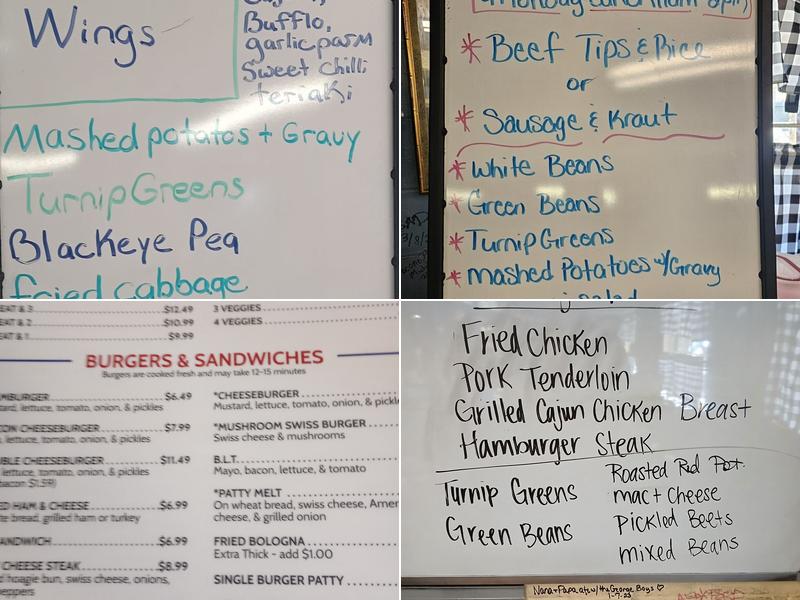 Wings
Bufflo,
garlic parm
Sweet chilli
teriaki
Mashed potatos + Gravy
Turnip Greens
Blackeye Pea
fried cabbage
* Beef Tips & Rice
or
* Sausage & Kraut
* White Beans
* Green Beans
* Turnip Greens
* mashed Potatoes w/Gravy
EAT & 3 $12.49
EAT & 2 $10.99
EAT & 1 $9.99
3 VEGGIES
4 VEGGIES
BURGERS & SANDWICHES
Burgers are cooked fresh and may take 12-15 minutes
MBURGER $6.49
tard, lettuce, tomato, onion, & pickles
ON CHEESEBURGER $7.99
, lettuce, tomato, onion, & pickles
BLE CHEESEBURGER $11.49
, lettuce, tomato, onion, & pickles
bacon $1.59)
ED HAM & CHEESE $6.99
te bread, grilled ham or turkey
ANDWICH $6.99
CHEESE STEAK $8.99
d hoagie bun, swiss cheese, onions,
eppers
*CHEESEBURGER
Mustard, lettuce, tomato, onion, & pickle
*MUSHROOM SWISS BURGER
Swiss cheese & mushrooms
B.L.T.
Mayo, bacon, lettuce, & tomato
*PATTY MELT
On wheat bread, swiss cheese, Amer
cheese, & grilled onion
FRIED BOLOGNA
Extra Thick - add $1.00
SINGLE BURGER PATTY
Fried Chicken
Pork Tenderloin
Grilled Cajun Chicken Breast
Hamburger Steak
Turnip Greens
Green Beans
Roasted Red Pot.
mac + Cheese
Pickled Beets
mixed Beans
Nana + Papa ate w/ the George Boys
1-7-23